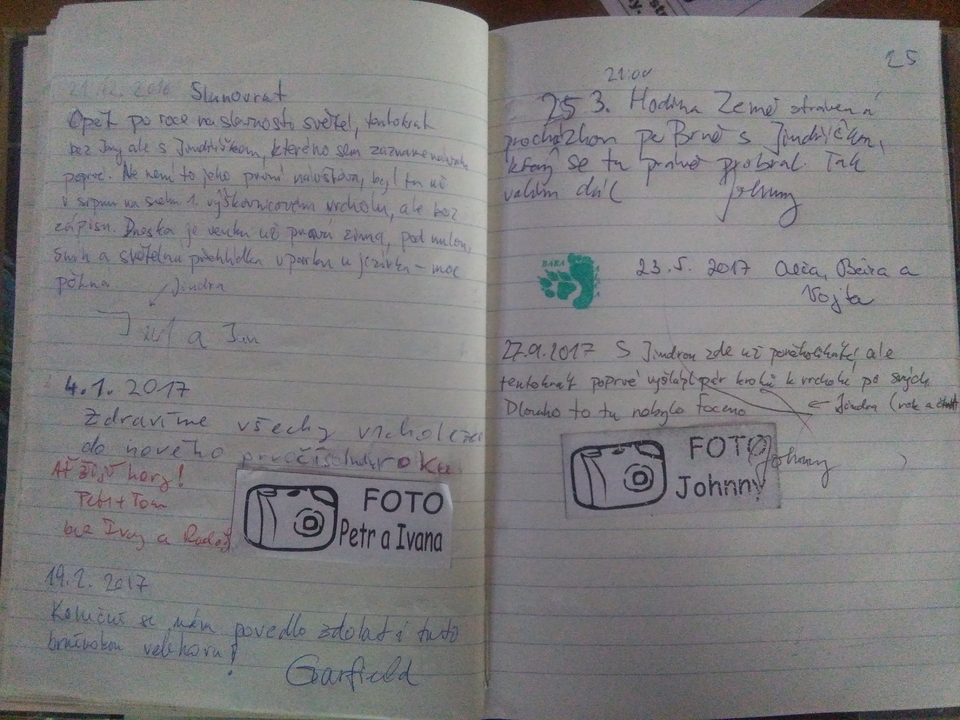 21.12.2016 Slunovrat
Opět po roce na slavnosti světel, tentokrát
bez Ivy ale s Jindříškem, kterého sem zaznamenávám
poprvé. Ne není to jeho první návštěva, byl tu už
v srpnu na svém 1. výškovnicovém vrcholu, ale bez
zápisu. Dneska je venku už pravá zima, pod nulou,
sníh a světelná prohlídka v parku u jezírka - moc
pěkná.
Jindra
a Jan
4.1.2017
Zdravíme všechy vrcholaře
do nového roku
Ať žijí hory!
Petr + Tom
bez Ivy a Radol
FOTO
Petr a Ivana
19.2.2017
Konečně se nám povedlo zdolat i tuto
brněnskou velehoru!
Garfield
25
21:00
25 3. Hodina Země strávená
procházkou po Brně s Jindříškem,
který se tu právě probral. Tak
valím dál
Johnny
BARA
23.5.2017 Alča, Bára a
Vojta
27.9.2017 S Jindrou zde už poněkolikáté, ale
tentokrát poprvé vyšlápl pár kroků k vrcholu po svých
Dlouho to tu nebylo foceno
← Jindra (rok a čtvrt
FOTO
Johnny
Johnny